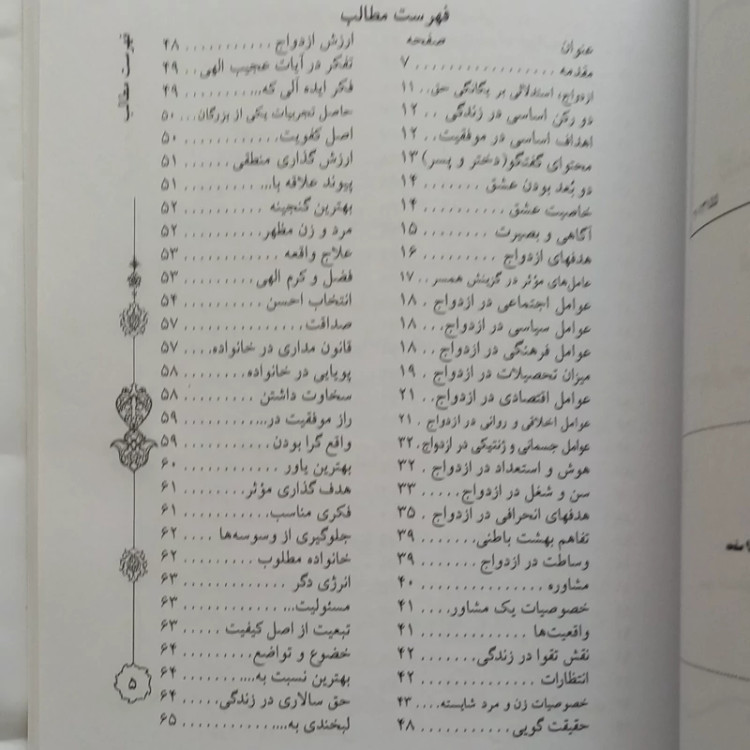 فهرست مطالب
عنوان صفحه
مقدمه .................. ۷
ازدواج، استدلالی بر یگانگی حق... ۱۱
دو رکن اساسی در زندگی .. ۱۲
اهداف اساسی در موفقیت.. ۱۲
محتوای گفتگو(دختر و پسر) ۱۳
دو بُعد بودن عشق ....... ۱۴
خاصیت عشق .......... ۱۴
آگاهی و بصیرت ........ ۱۵
هدفهای ازدواج ......... ۱۶
عامل‌های مؤثر در گزینش همسر .. ۱۷
عوامل اجتماعی در ازدواج . ۱۸
عوامل سیاسی در ازدواج... ۱۸
عوامل فرهنگی در ازدواج .. ۱۸
میزان تحصیلات در ازدواج . ۱۹
عوامل اقتصادی در ازدواج.. ۲۱
عوامل اخلاقی و روانی در ازدواج . ۲۱
عوامل جسمانی و ژنتیکی در ازدواج. ۳۲
هوش و استعداد در ازدواج . ۳۲
سن و شغل در ازدواج..... ۳۳
هدفهای انحرافی در ازدواج . ۳۵
تفاهم بهشت باطنی....... ۳۹
وساطت در ازدواج ....... ۳۹
مشاوره .............. ۴۰
خصوصیات یک مشاور.... ۴۱
واقعیت‌ها ............. ۴۱
نقش تقوا در زندگی....... ۴۲
انتظارات .............. ۴۲
خصوصیات زن و مرد شایسته.... ۴۳
حقیقت گویی........... ۴۸
ارزش ازدواج ........... ۴۸
تفکر در آیات عجیب الهی.. ۴۹
فکر ایده آلی که.......... ۴۹
حاصل تجربیات یکی از بزرگان... ۵۰
اصل کفویت............ ۵۰
ارزش گذاری منطقی ...... ۵۱
پیوند علاقه با........... ۵۱
بهترین گنجینه .......... ۵۲
مرد و زن مظهر.......... ۵۲
علاج واقعه ............ ۵۳
فضل و کرم الهی ........ ۵۳
انتخاب احسن .......... ۵۴
صداقت ............... ۵۷
قانون مداری در خانواده.... ۵۷
پویایی در خانواده........ ۵۸
سخاوت داشتن ......... ۵۸
راز موفقیت در.......... ۵۹
واقع گرا بودن.......... ۵۹
بهترین یاور ............ ۶۰
هدف گذاری مؤثر........ ۶۱
فکری مناسب........... ۶۱
جلوگیری از وسوسه‌ها .... ۶۲
خانواده مطلوب ......... ۶۲
انرژی دگر ............ ۶۳
مسئولیت.............. ۶۳
تبعیت از اصل کیفیت ..... ۶۳
خضوع و تواضع......... ۶۴
بهترین نسبت به......... ۶۴
حق سالاری در زندگی..... ۶۴
لبخندی به............. ۶۵
فهرست مطالب
۵